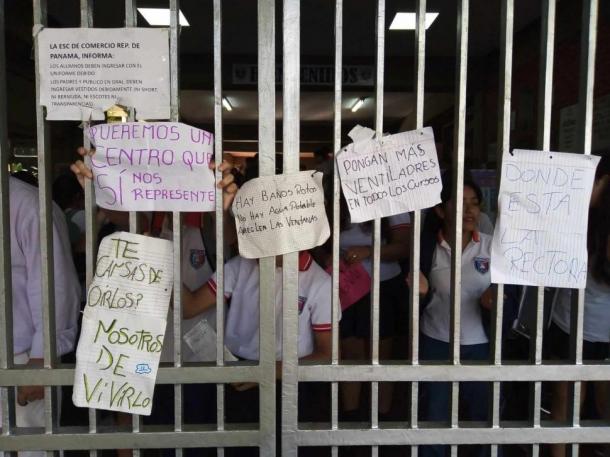 LA ESC DE COMERCIO REP. DE
PANAMA, INFORMA:
LOS ALUMNOS DEBEN INGRESAR CON EL
UNIFORME DEBIDO
LOS PADRES Y PUBLICO EN GRAL. DEBEN
INGRESAR VESTIDOS DEBIDAMENTE (NI SHORT,
NI BERMUDA, NI ESCOTES NI
TRANSPARENCIAS)
QUEREMOS UN
CENTRO QUE
SÍ NOS
REPRESENTE
TE
CANSAS DE
OIRLOS?
NOSOTROS
DE
VIVIRLO
HAY BAÑOS ROTOS
NO HAY AGUA POTABLE
LAS VENTANAS
PONGAN MÁS
VENTILADRES
EN TODOS LOS CURSOS
DONDE
ESTA
LA
RECTORA